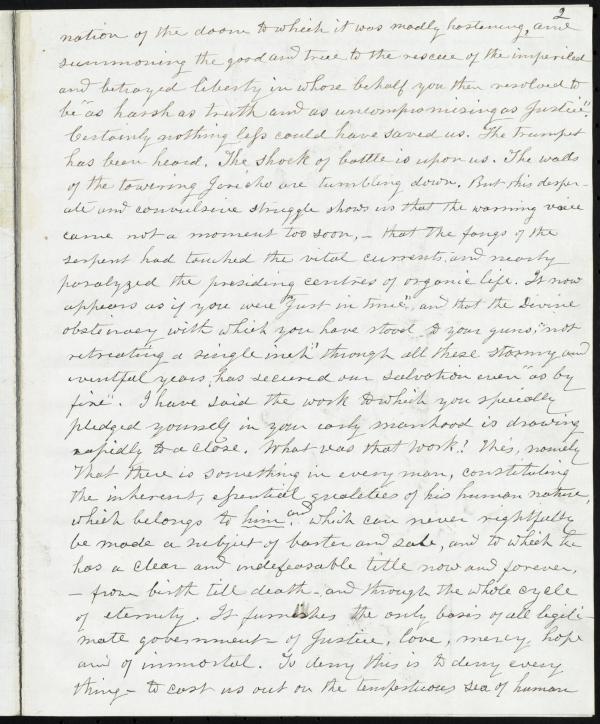 2
nation of the doom to which it was madly hastening, and
summoning the good and true to the rescue of the imperiled
and betrayed liberty in whose behalf you then resolved to
be "as harsh as truth and as uncompromising as Justice".
Certainly nothing less could have saved us. The trumpet
has been heard. The shock of battle is upon us. The walls
of the towering Jericho are tumbling down. But this desper-
ate and convulsive struggle shows us that the warning voice
came not a moment too soon, – that the fangs of the
serpent had touched the vital currents and nearly
paralyzed the presiding centres of organic life. It now
appears as if you were "just in time", and that the Divine
obstinacy with which you have stood to your guns, "not
retreating a single inch" through all these stormy and
eventful years, has secured our salvation even "as by
fire". I have said the work to which you specially
pledged yourself in your early manhood is drawing
rapidly to a close. What was that work? This, namely
That there is something in every man, constituting
the inherent, essential qualities of his human nature,
which belongs to him, and which can never rightfully
be made a subject of barter and sale, and to which he
has a clear and indefeasable title now and forever,
– from birth till death – and through the whole cycle
of eternity. It furnishes the only basis of all legiti-
mate government – of Justice, love, mercy, hope
and of immortal. To deny this is to deny every
thing – to cast us out on the tempestuous sea of human